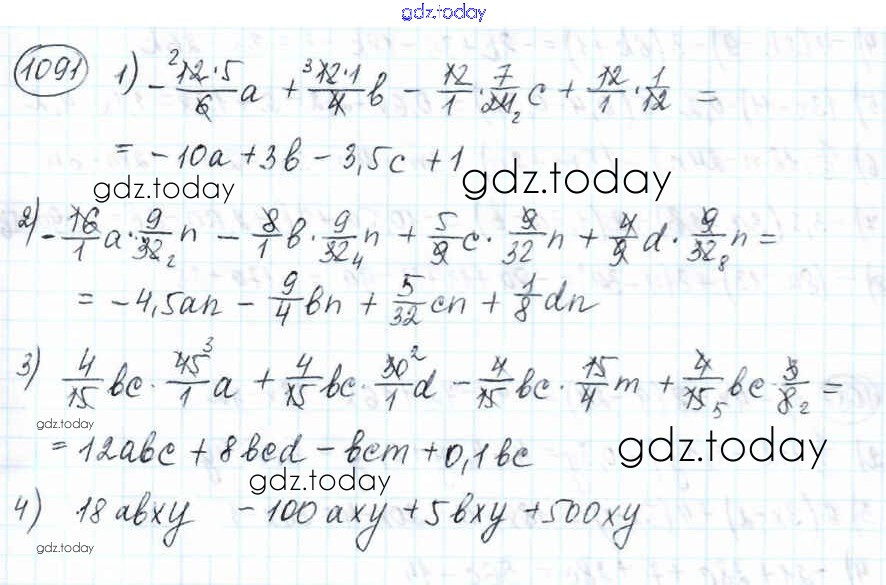 gdz.today
1091 1) - 12·5/6 a + 12·1/4 b - 12/1 · 7/24 c + 12/1 · 1/12 =
= -10a + 3b - 3,5c + 1
gdz.today gdz.today
2) - 16/1 a · 9/32 n - 8/1 b · 9/32 n + 5/9 c · 9/32 n + 4/9 d · 9/32 n =
= -4,5an - 9/4 bn + 5/32 cn + 1/8 dn
3) 4/15 bc · 45/1 a + 4/15 bc · 30/1 d - 4/15 bc · 15/4 m + 4/15 bc · 3/8 =
gdz.today
= 12abc + 8bcd - bcm + 0,1bc gdz.today
gdz.today
4) 18abxy - 100axy + 5bxy + 500xy
gdz.today